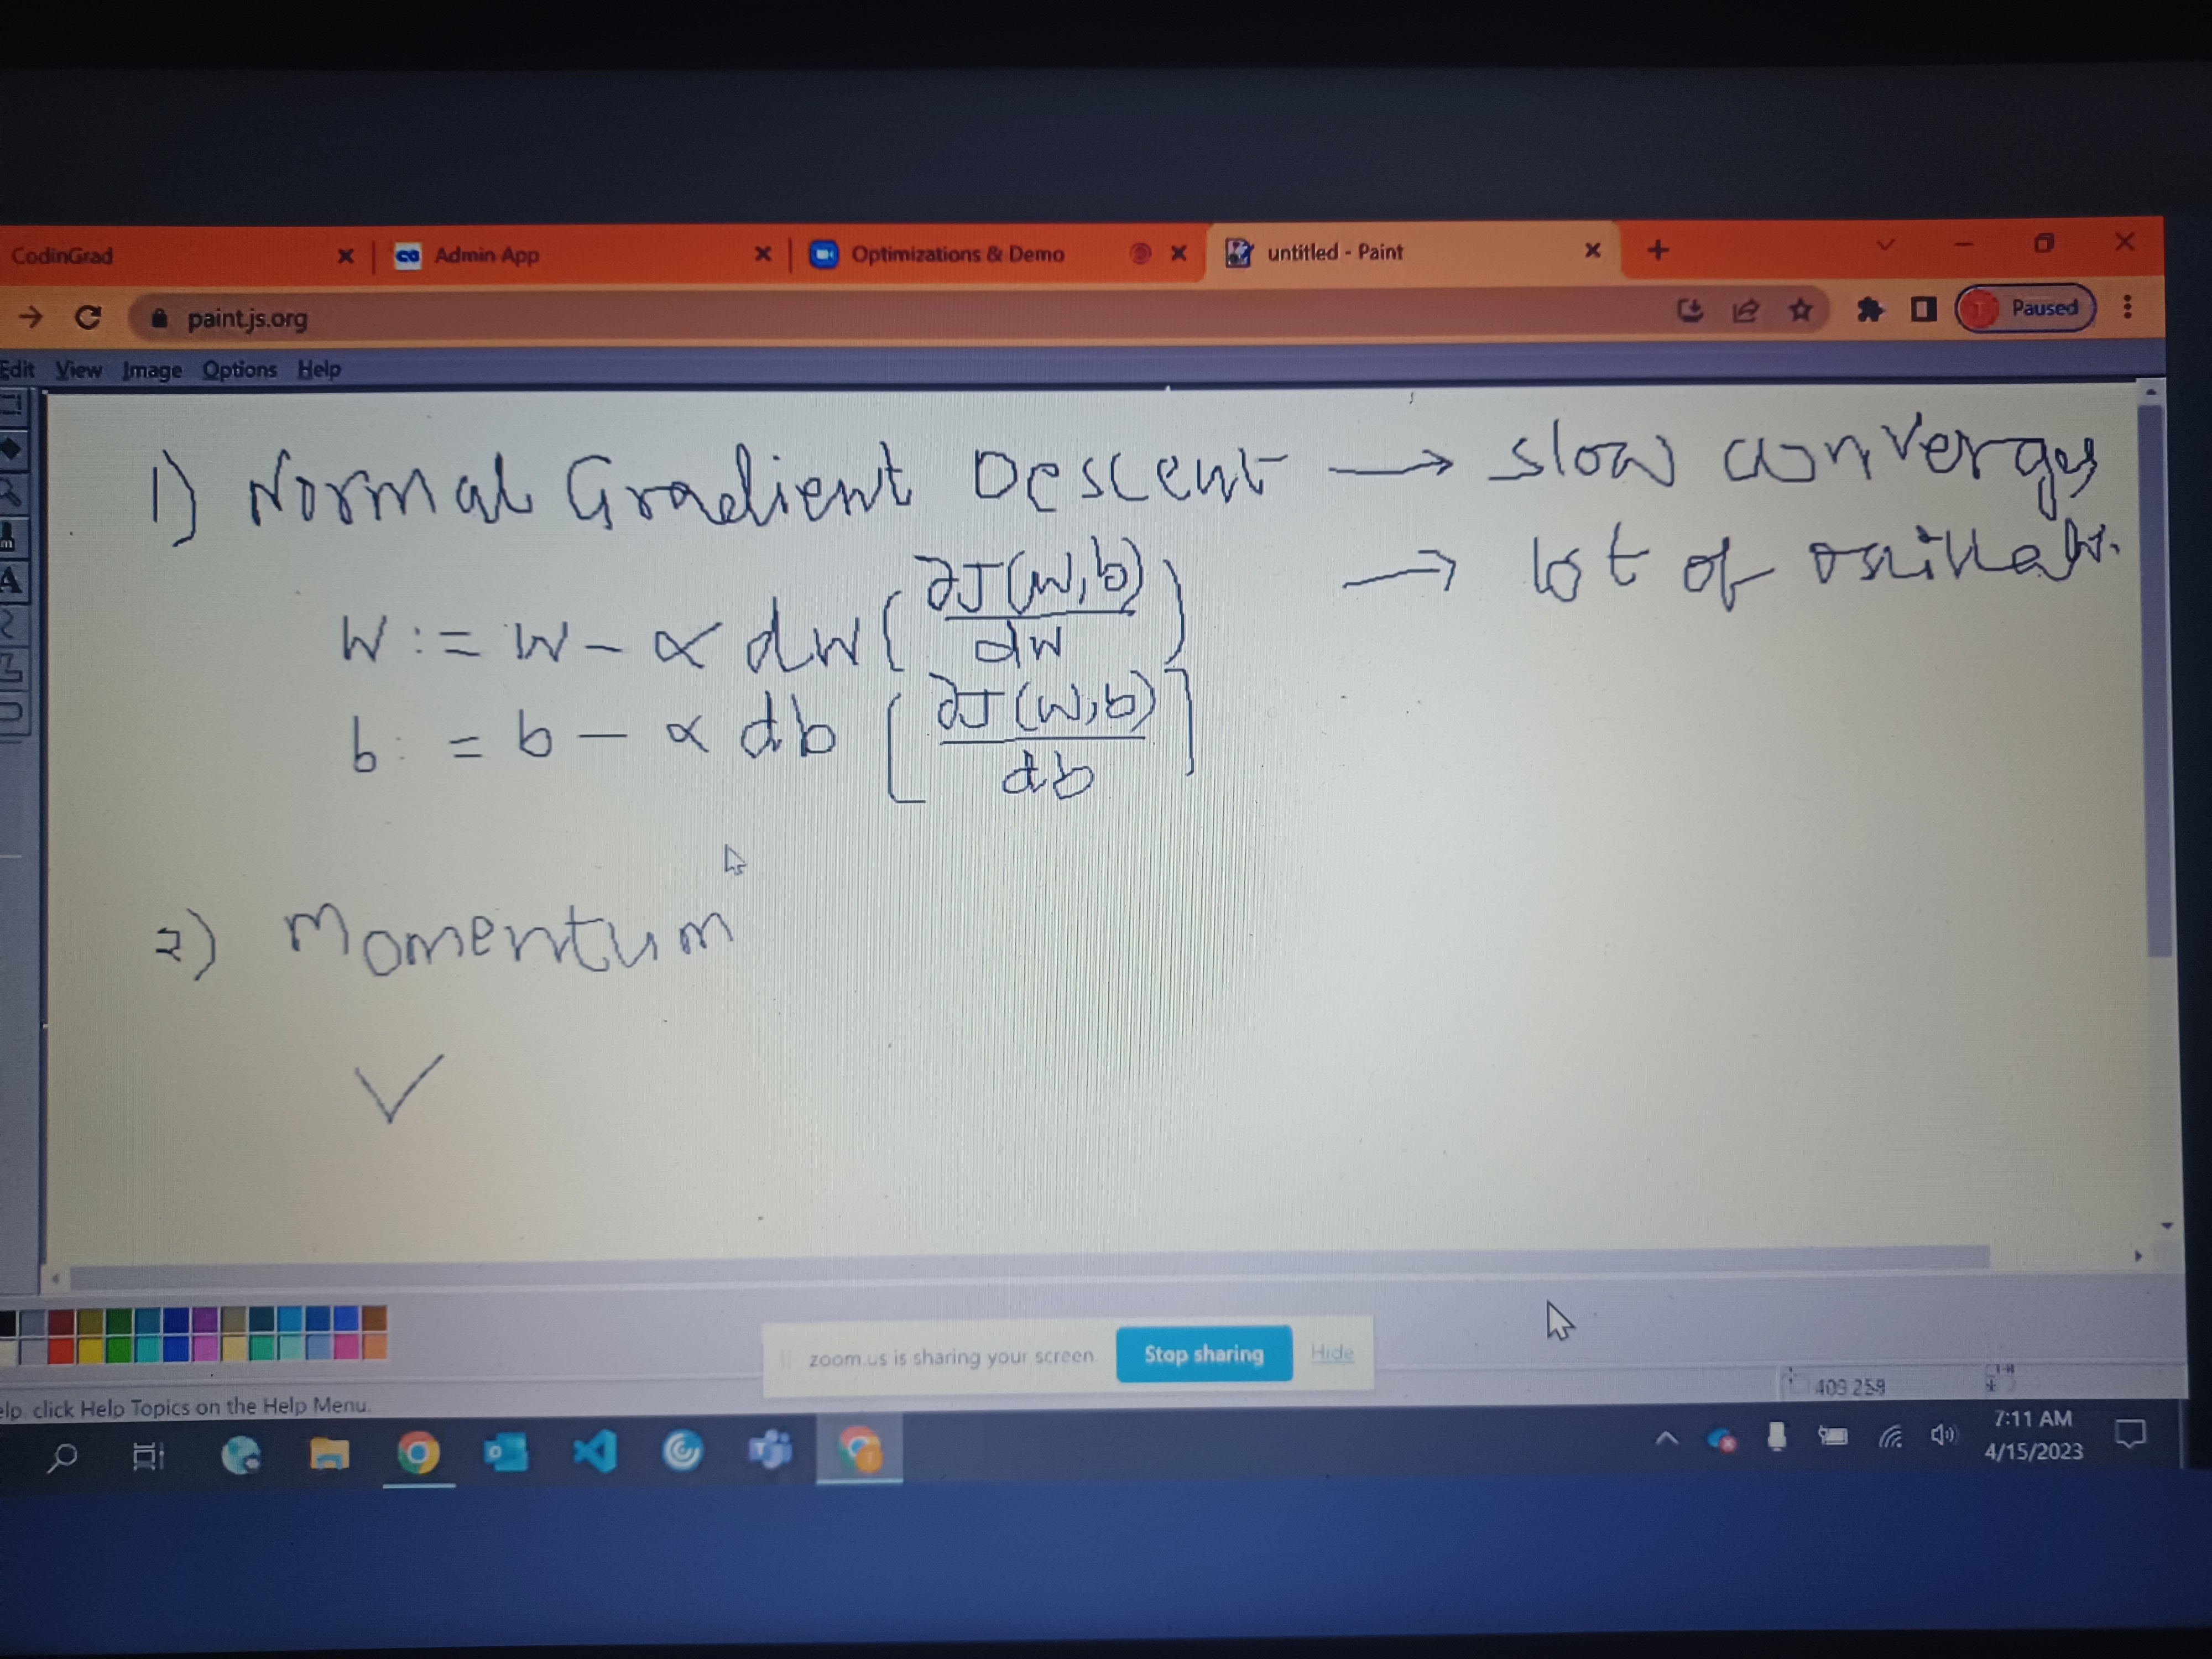 CodinGrad
Admin App
Optimizations & Demo
untitled - Paint
paint.js.org
Paused
Edit View Image Options Help
1) Normal Gradient Descent → slow converges
→ lot of
W := W - α dw ( ∂J(W,b) / dw )
b := b - α db [ ∂J(W,b) / db ]
2) Momentum
V
zoom.us is sharing your screen.
Stop sharing
Hide
409 259
click Help Topics on the Help Menu.
7:11 AM
4/15/2023